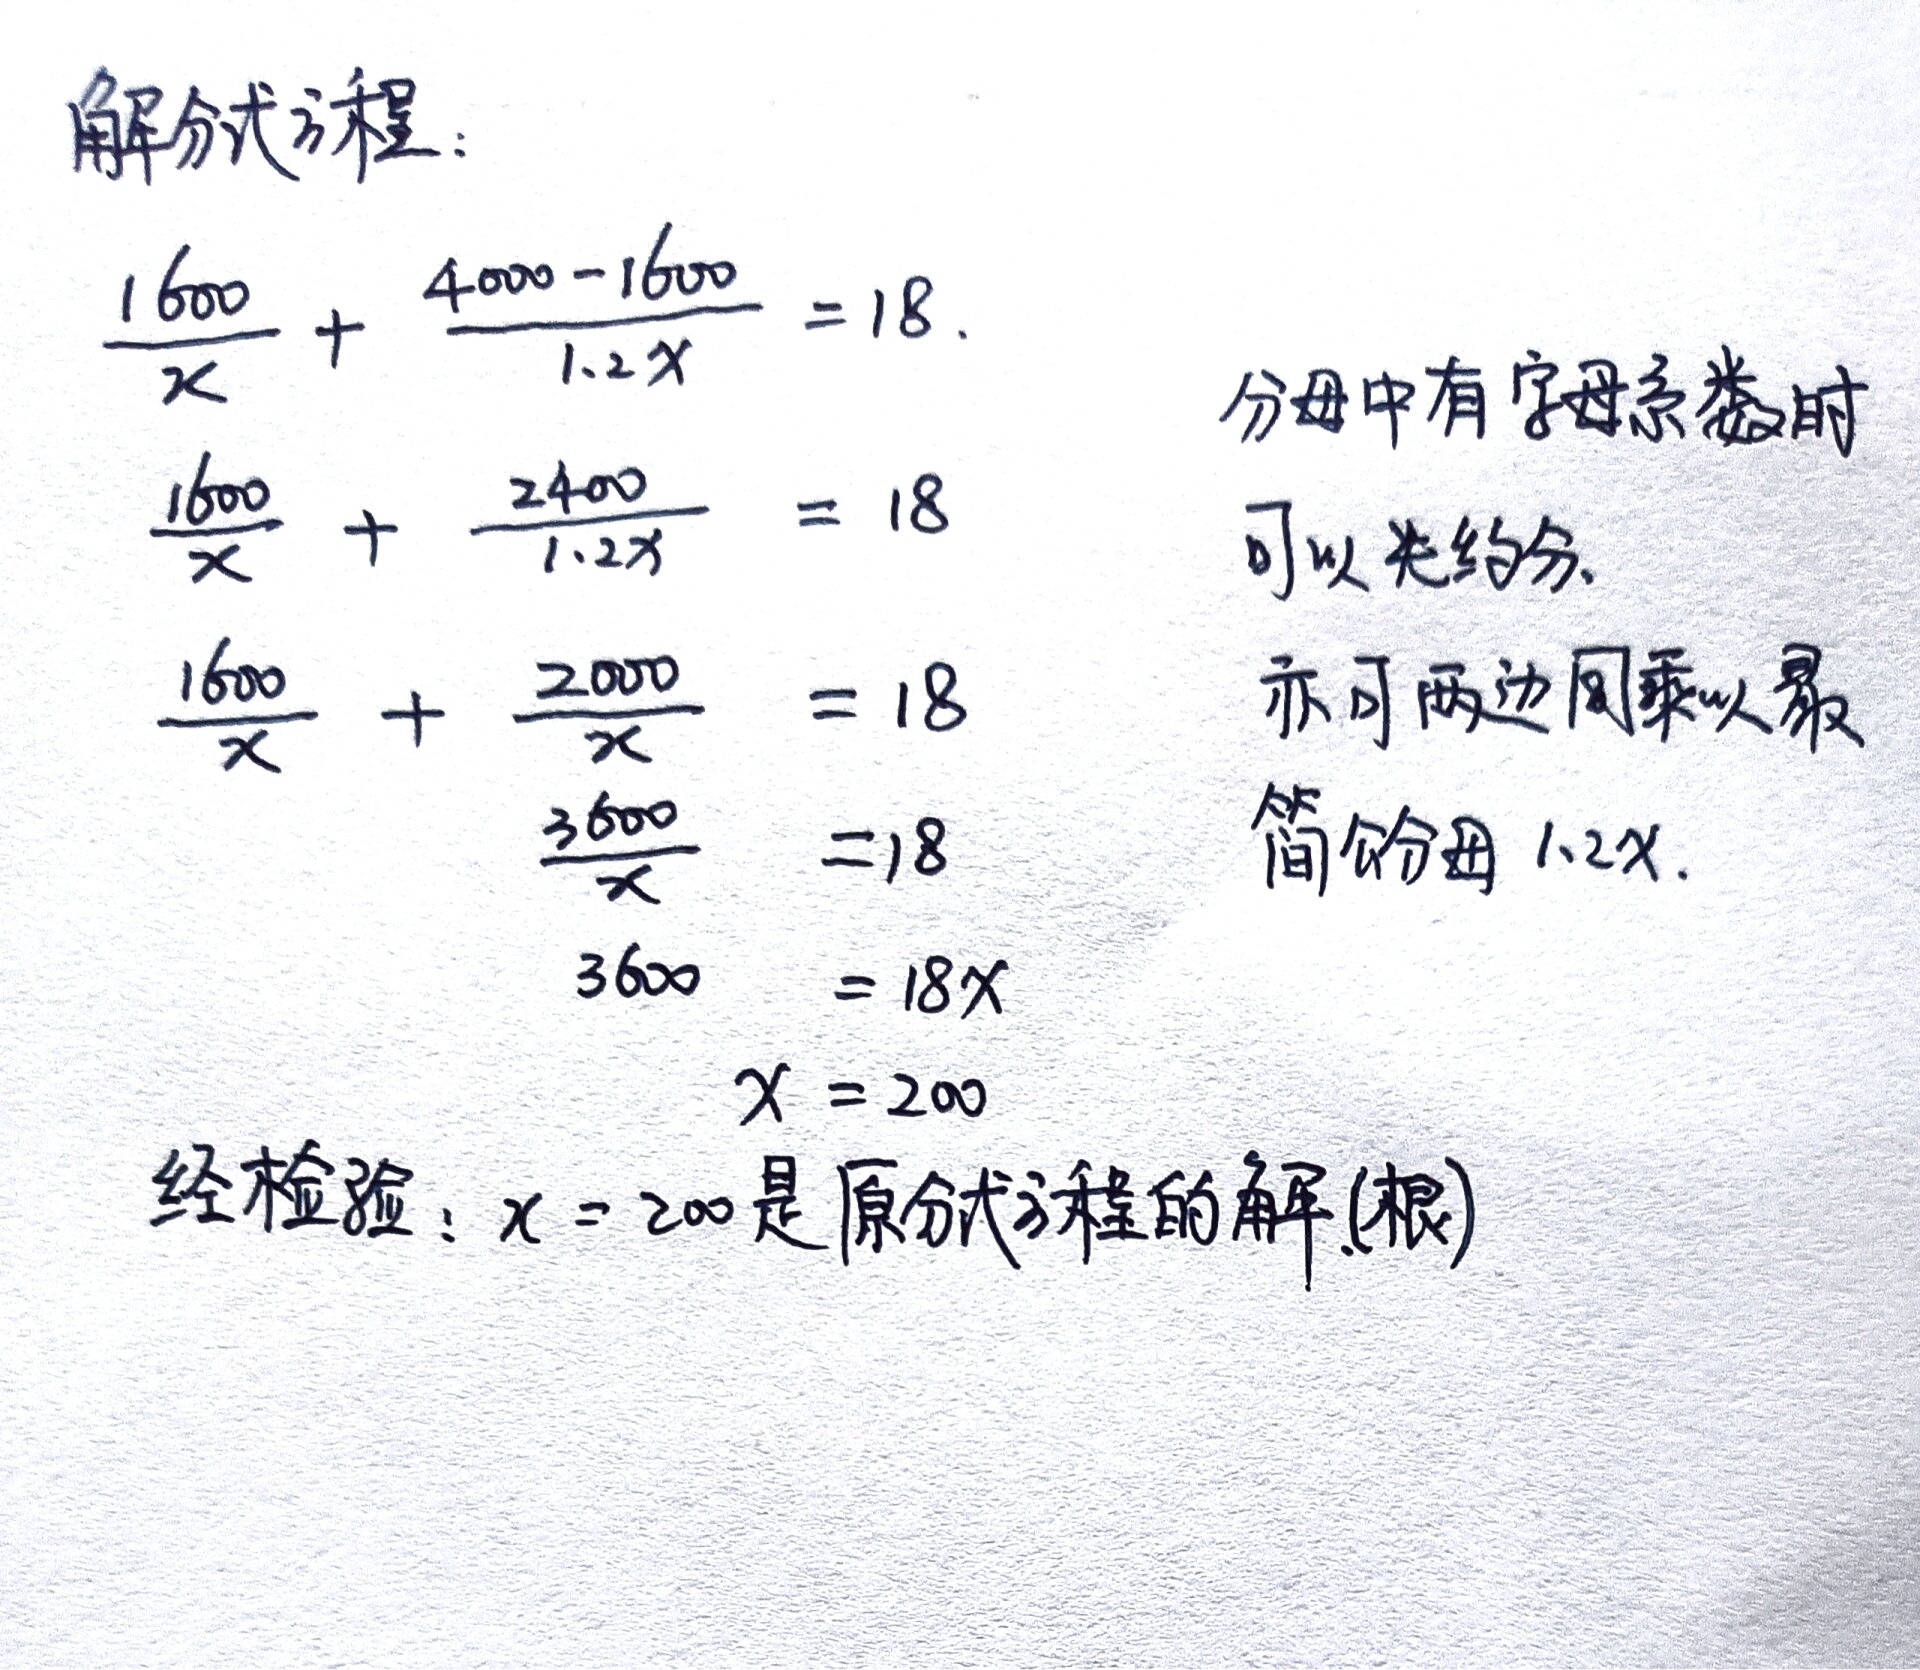 解分式方程:
1600/x + (4000-1600)/1.2x = 18.
1600/x + 2400/1.2x = 18
1600/x + 2000/x = 18
3600/x = 18
3600 = 18x
x = 200
经检验: x = 200是原分式方程的解.(根)
分母中有字母系数时
可以先约分、
亦可两边同乘以最
简公分母 1.2x.